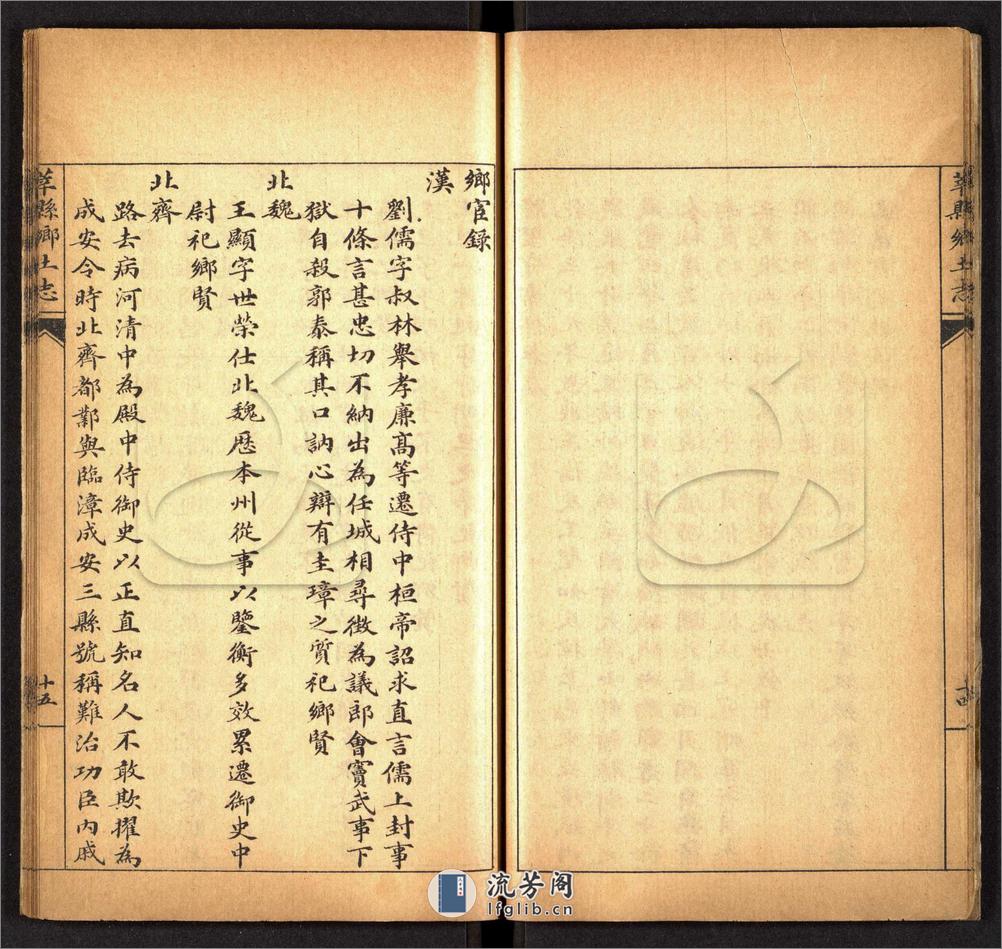 莘縣鄉土志
十四
鄉宦錄
漢
劉儒字叔林舉孝廉高等遷侍中桓帝詔求直言儒上封事
十條言甚忠切不納出為任城相尋徵為議郎會竇武事下
獄自殺郭泰稱其口訥心辯有圭璋之質祀鄉賢
北魏
王顯字世榮仕北魏歷本州從事以鑒衡多效累遷御史中
尉祀鄉賢
北齊
路去病河清中為殿中侍御史以正直知名人不敢欺擢為
成安令時北齊都鄴與臨漳成安三縣號稱難治功臣內戚
莘縣鄉土志
十五
流芳阁
lfglib.cn